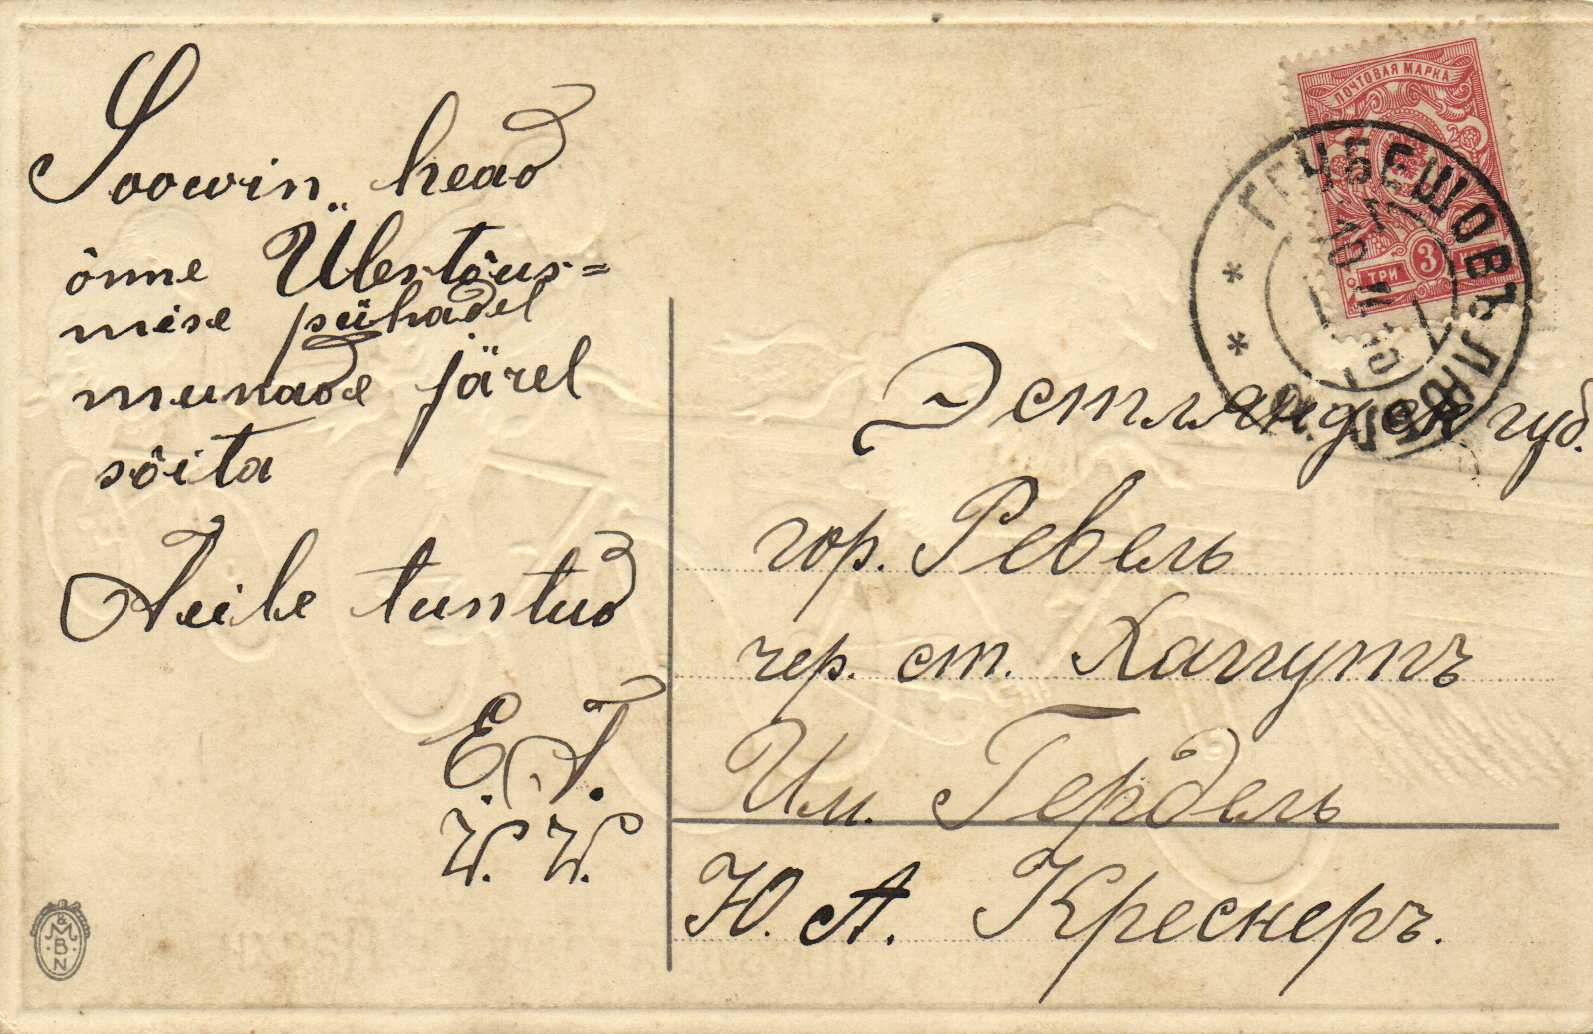 Soowin head
õnne Ülestõus=
mise pühadel
munade järel
sõita
Teile tuntud
E. T.
W. W.
ПОЧТОВАЯ МАРКА
ТРИ 3 КОП
ГРУБЕШОВЪ ЛЮБЛ.
Эстляндск губ.
гор. Ревель
чер. ст. Хаггутъ
Им. Гердель
Ю. А. Креснеръ.
& M B N